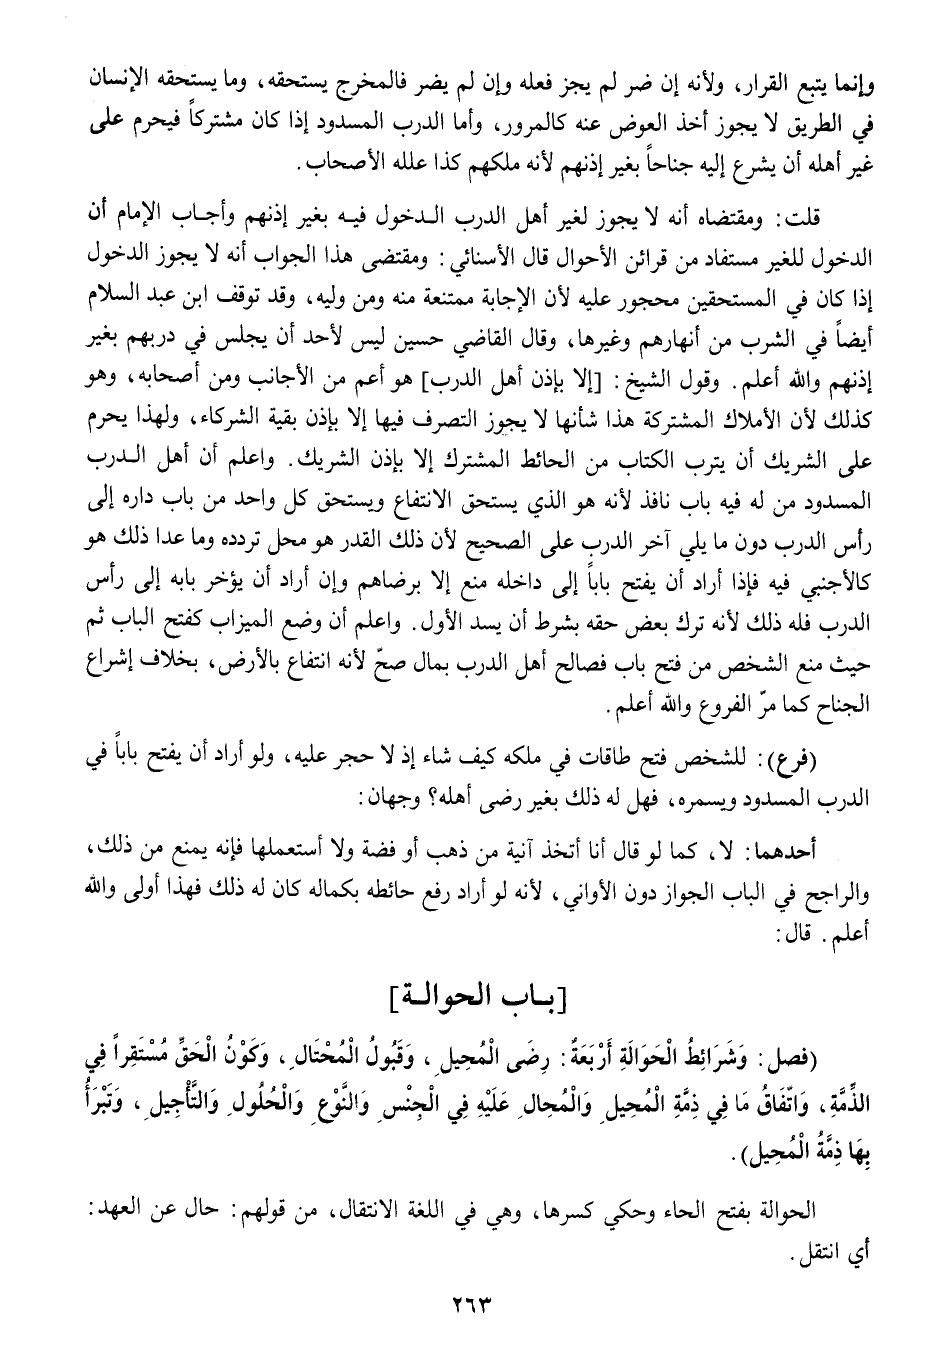 وإنما يتبع القرار، ولأنه إن ضر لم يجز فعله وإن لم يضر فالمخرج يستحقه، وما يستحقه الإنسان
في الطريق لا يجوز أخذ العوض عنه كالمرور، وأما الدرب المسدود إذا كان مشتركاً فيحرم على
غير أهله أن يشرع إليه جناحاً بغير إذنهم لأنه ملكهم كذا علله الأصحاب.
قلت: ومقتضاه أنه لا يجوز لغير أهل الدرب الدخول فيه بغير إذنهم وأجاب الإمام أن
الدخول للغير مستفاد من قرائن الأحوال قال الأسنائي: ومقتضى هذا الجواب أنه لا يجوز الدخول
إذا كان في المستحقين محجور عليه لأن الإجابة ممتنعة منه ومن وليه، وقد توقف ابن عبد السلام
أيضاً في الشرب من أنهارهم وغيرها، وقال القاضي حسين ليس لأحد أن يجلس في دربهم بغير
إذنهم والله أعلم. وقول الشيخ: [إلا بإذن أهل الدرب] هو أعم من الأجانب ومن أصحابه، وهو
كذلك لأن الأملاك المشتركة هذا شأنها لا يجوز التصرف فيها إلا بإذن بقية الشركاء، ولهذا يحرم
على الشريك أن يترب الكتاب من الحائط المشترك إلا بإذن الشريك. واعلم أن أهل الدرب
المسدود من له فيه باب نافذ لأنه هو الذي يستحق الانتفاع ويستحق كل واحد من باب داره إلى
رأس الدرب دون ما يلي آخر الدرب على الصحيح لأن ذلك القدر هو محل تردده وما عدا ذلك هو
كالأجنبي فيه فإذا أراد أن يفتح باباً إلى داخله منع إلا برضاهم وإن أراد أن يؤخر بابه إلى رأس
الدرب فله ذلك لأنه ترك بعض حقه بشرط أن يسد الأول. واعلم أن وضع الميزاب كفتح الباب ثم
حيث منع الشخص من فتح باب فصالح أهل الدرب بمال صحّ لأنه انتفاع بالأرض، بخلاف إشراع
الجناح كما مرّ الفروع والله أعلم.
(فرع): للشخص فتح طاقات في ملكه كيف شاء إذ لا حجر عليه، ولو أراد أن يفتح باباً في
الدرب المسدود ويسمره، فهل له ذلك بغير رضى أهله؟ وجهان:
أحدهما: لا، كما لو قال أنا أتخذ آنية من ذهب أو فضة ولا أستعملها فإنه يمنع من ذلك،
والراجح في الباب الجواز دون الأواني، لأنه لو أراد رفع حائطه بكماله كان له ذلك فهذا أولى والله
أعلم. قال:
[باب الحوالة]
(فصل: وَشَرَائِطُ الْحَوَالَةِ أَرْبَعَةٌ: رِضَى الْمُحِيلِ، وَقَبُولُ الْمُحْتَالِ، وَكَوْنُ الْحَقِّ مُسْتَقِراً فِي
الذِّمَّةِ، وَاتِّفَاقُ مَا فِي ذِمَّةِ الْمُحِيلِ وَالْمُحالِ عَلَيْهِ فِي الْجِنْسِ وَالنَّوْعِ وَالْحُلُولِ وَالتَّأْجِيلِ، وَتَبْرَأُ
بِهَا ذِمَّةُ الْمُحِيلِ).
الحوالة بفتح الحاء وحكي كسرها، وهي في اللغة الانتقال، من قولهم: حال عن العهد:
أي انتقل.
٢٦٣